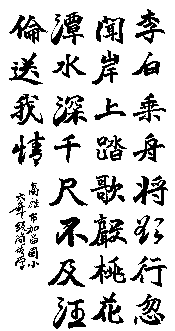 李白乘舟將欲行忽
聞岸上踏歌聲桃花
潭水深千尺不及汪
倫送我情
高雄市加昌國小
六年級